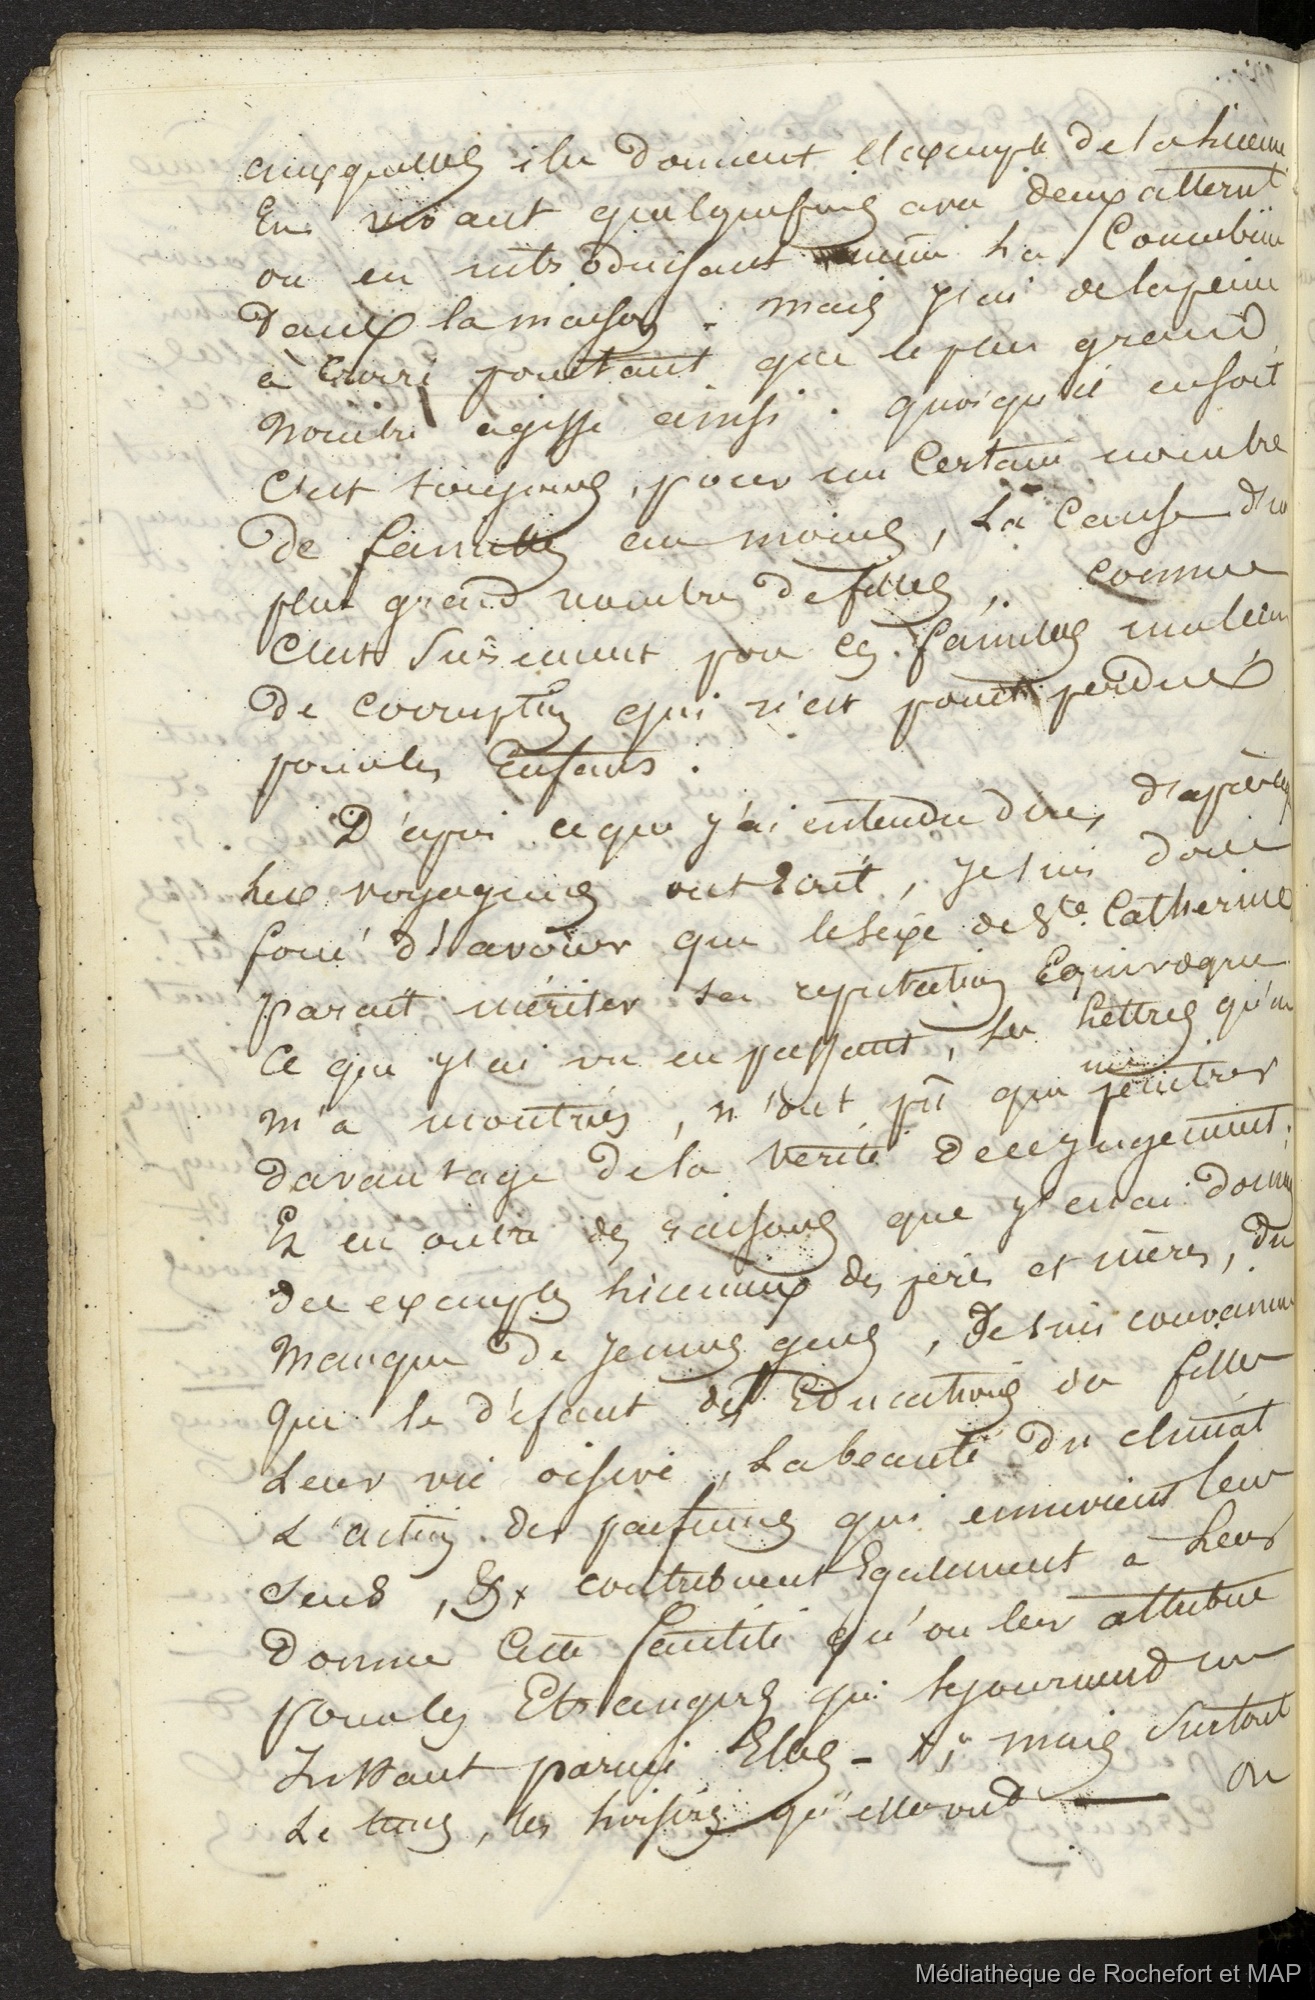 auxquelles ils donnent l'exemple de la licence
En vivant quelquefois avec deux
ou en introduisant même la Concubine
dans la maison. mais j'ai de la peine
à Croire pourtant que le plus grand
Nombre agisse ainsi. quoiqu'il en soit
C'est toujours, pour un Certain nombre
de familles au moins, La Cause d'un
plus grand nombre de filles, comme
C'est surement pour ces familles un lien
de corruption qui n'est point perdue
pour les Enfans.
D'après ce que j'ai entendu dire, d'après ce
que voyageurs ont Ecrit, je suis donc
forcé d'avouer que le sexe de Ste Catherine
parait mériter sa reputation Equivoque
Ce que j'ai vu en passant, les Lettres qu'on
m'a montrées, n'ont pû que me pénétrer
davantage de la Verité de ce jugement;
Et en outre des raisons que j'en ai donné
des exemples licencieux des pères et mères, du
Manque de Jeunes gens, Je suis convaincu
que le défaut des Educations des filles
Leur vie oisive, La beauté du climat
L'action des parfums qui ennivrent leur
sens, &a contribuent Egalement à leur
donner Cette facilité qu'on leur attribue
pour les Etrangers qui séjournend un
Instant parmi Elles - mais surtout
Le tems, les loisirs qu'elles ond — on
Médiathèque de Rochefort et MAP